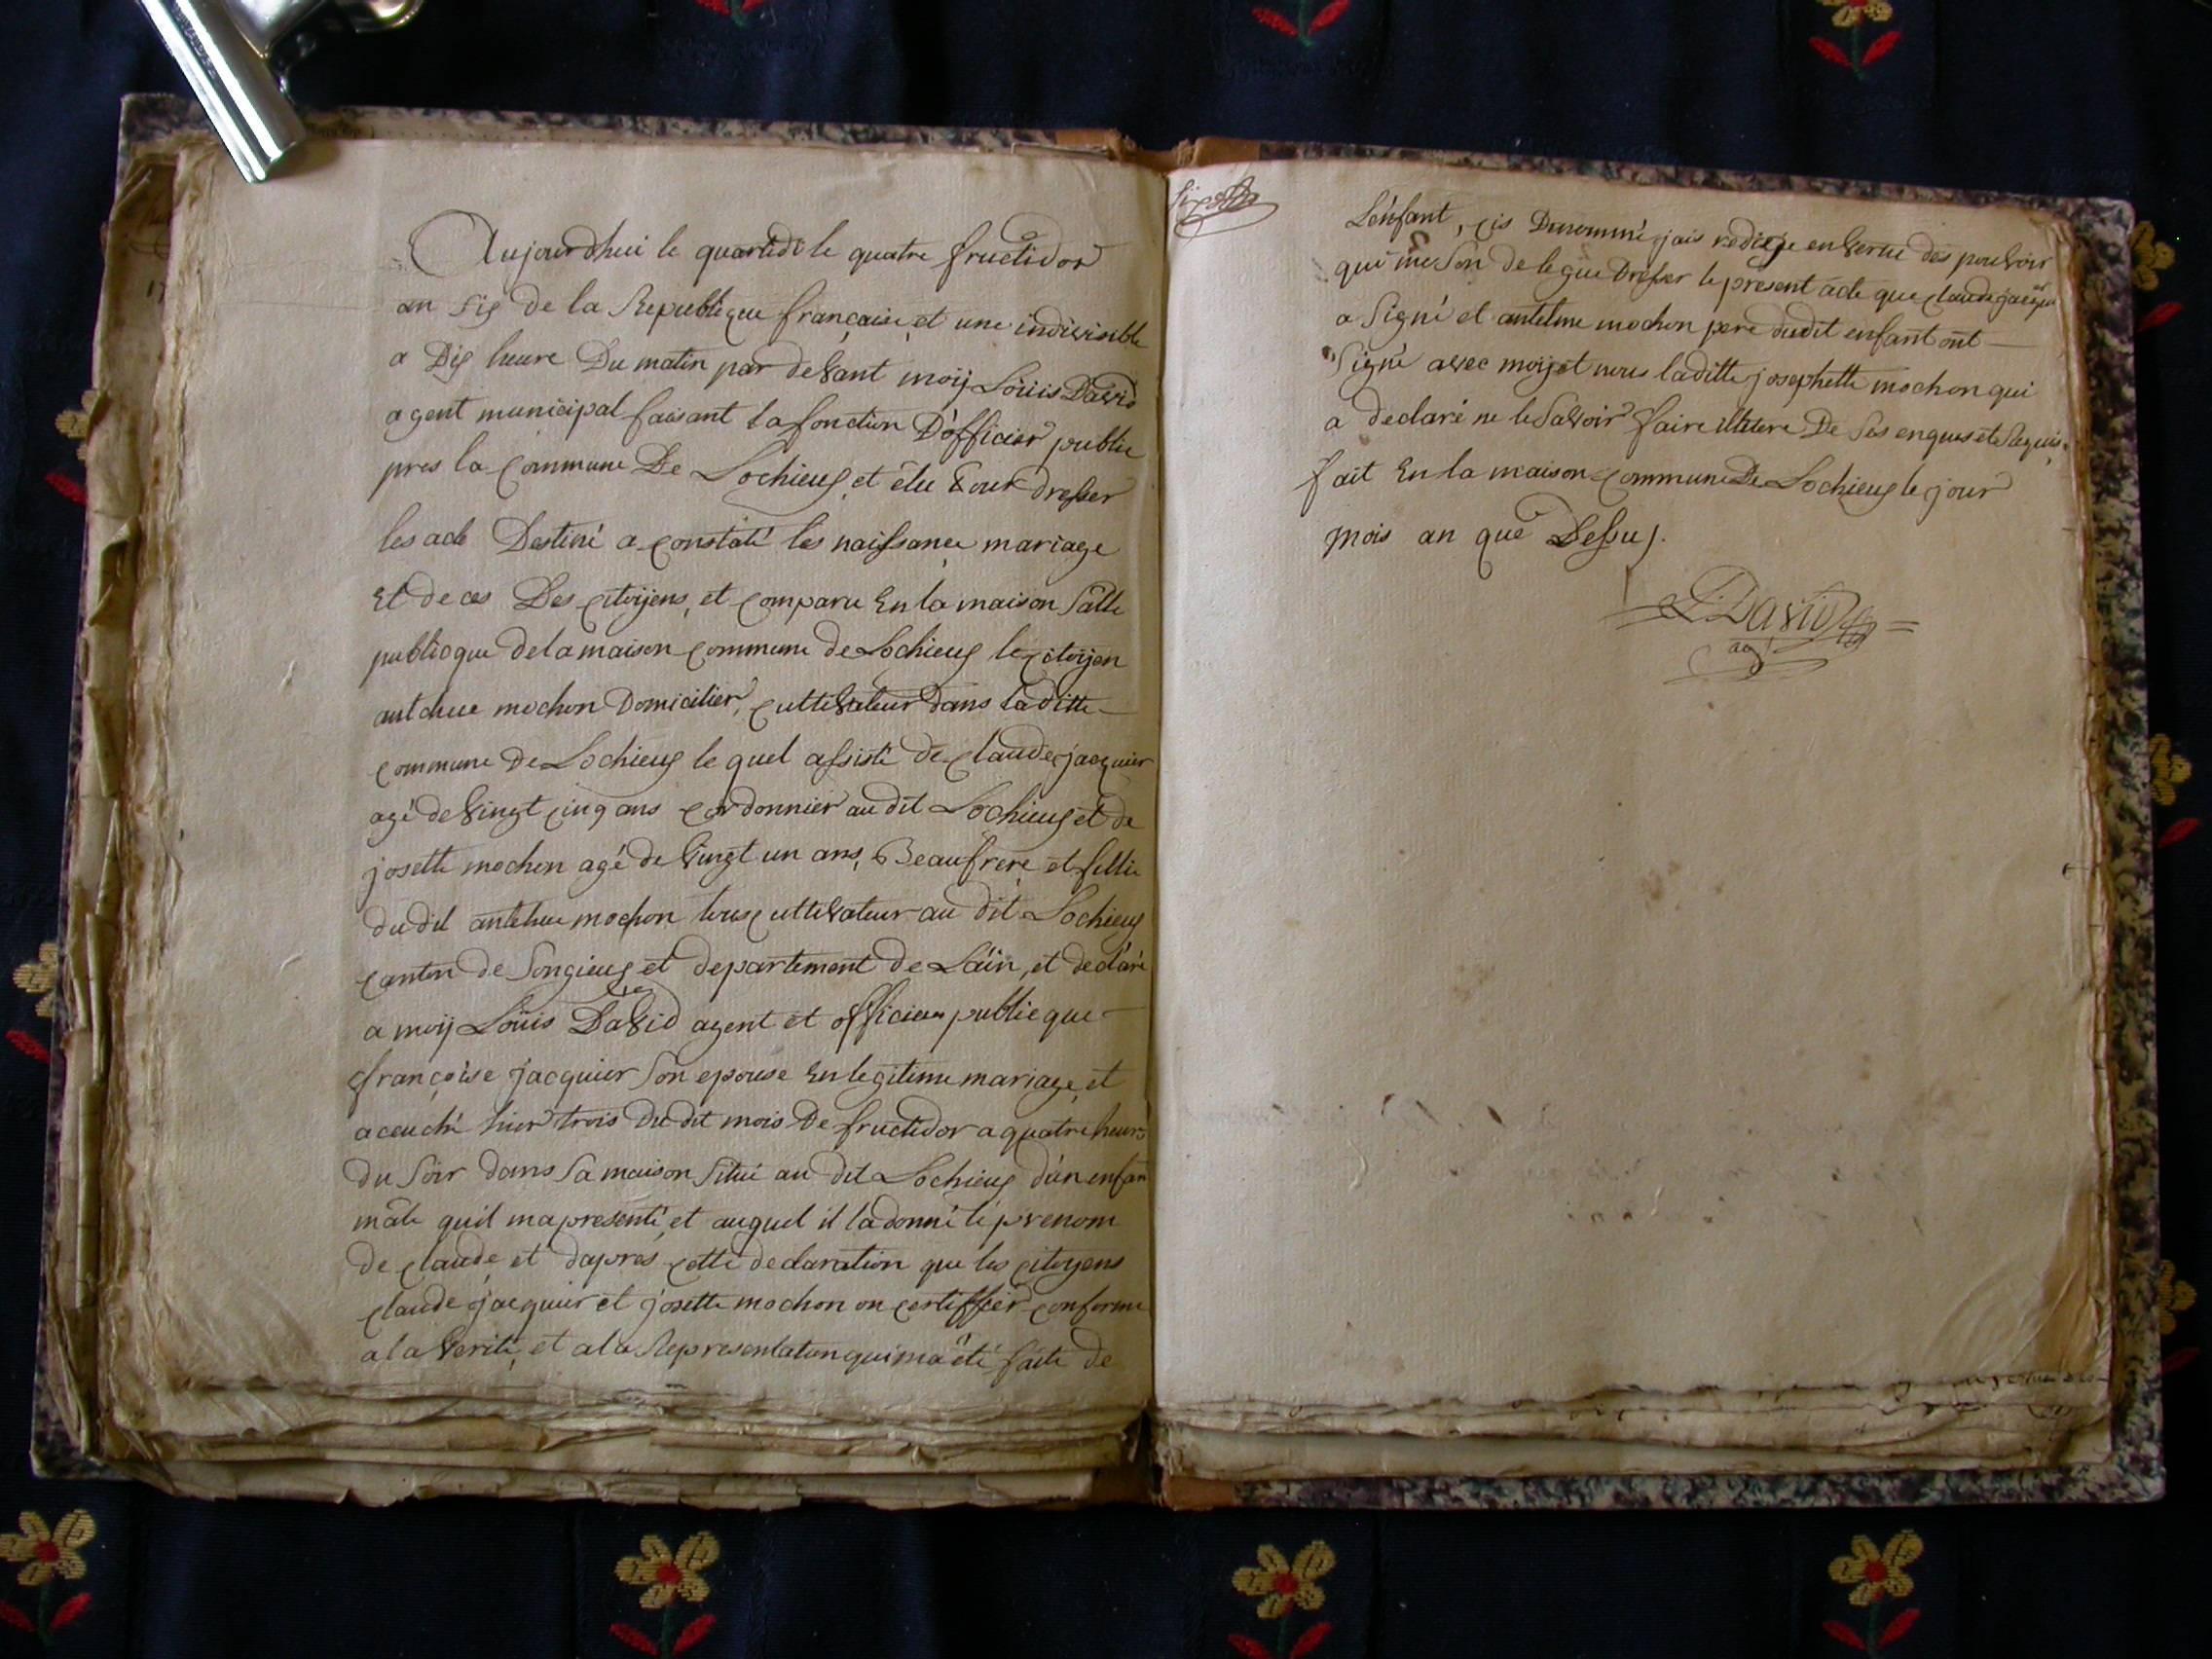 Aujourdhui le quartidi le quatre fructidor
an six de la Republique française et une indivisible
a Dix heure Du matin par devant moÿ Loüis David
agent municipal faisant la fonction D'officier public
pres la Commune De Lochieux et élu pour dresser
les acte Destiné a constaté les naissance mariage
Et de ces Des citoÿens, et comparu En la maison Salle
publicque de la maison commune de Lochieux le citoÿen
antelme mochon Domicilier, cultivateur dans laditte
commune De Lochieux le quel assisté de claude jacquier
agé de vingt cinq ans cordonnier au dit Lochieux et de
josette mochon agé de vingt un ans, Beaufrere et fillie
du dit antelme mochon tous cultivateur au dit Lochieux
canton de Songieux et departement de Laïn, et declaré
a moÿ Loüis David agent et officier public que
françoise jacquier Son epouse En legitime mariage, et
acouché hier trois Du dit mois De fructidor a quatre heures
du Soir dans Sa maison Situé au dit Lochieux d'un enfan
mâle quil ma presenté, et auquel il la donné le prenom
de claude, et dapres cette declaration que les citoyens
claude jacquier et josette mochon on certiffier conforme
a la verité, et a la Representation qui ma été faite de
six
L'enfant, cis Denommé jais redigé en vertu des pouvoir
qui me Son delegue Dresser le present acte que claude jacquier
a Signé et antelme mochon pere dudit enfant ont
Signé avec moÿ et nous laditte josephette mochon qui
a declaré ne le Savoir faire illitere De Ses enquis et Requis.
fait En la maison commune De Lochieux le jour
mois an que Dessus.
L. David
ag